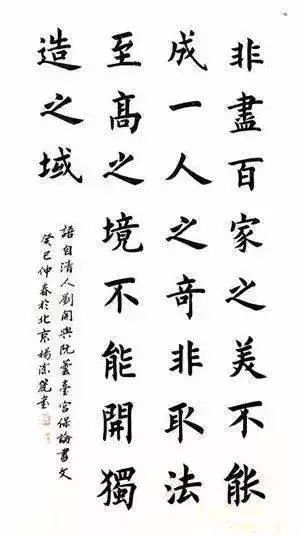 非盡百家之美不能
成一人之奇非取法
至高之境不能開獨
造之域
語自清人劉開與阮蕓臺宮保論書文
癸巳仲春於北京楊崇